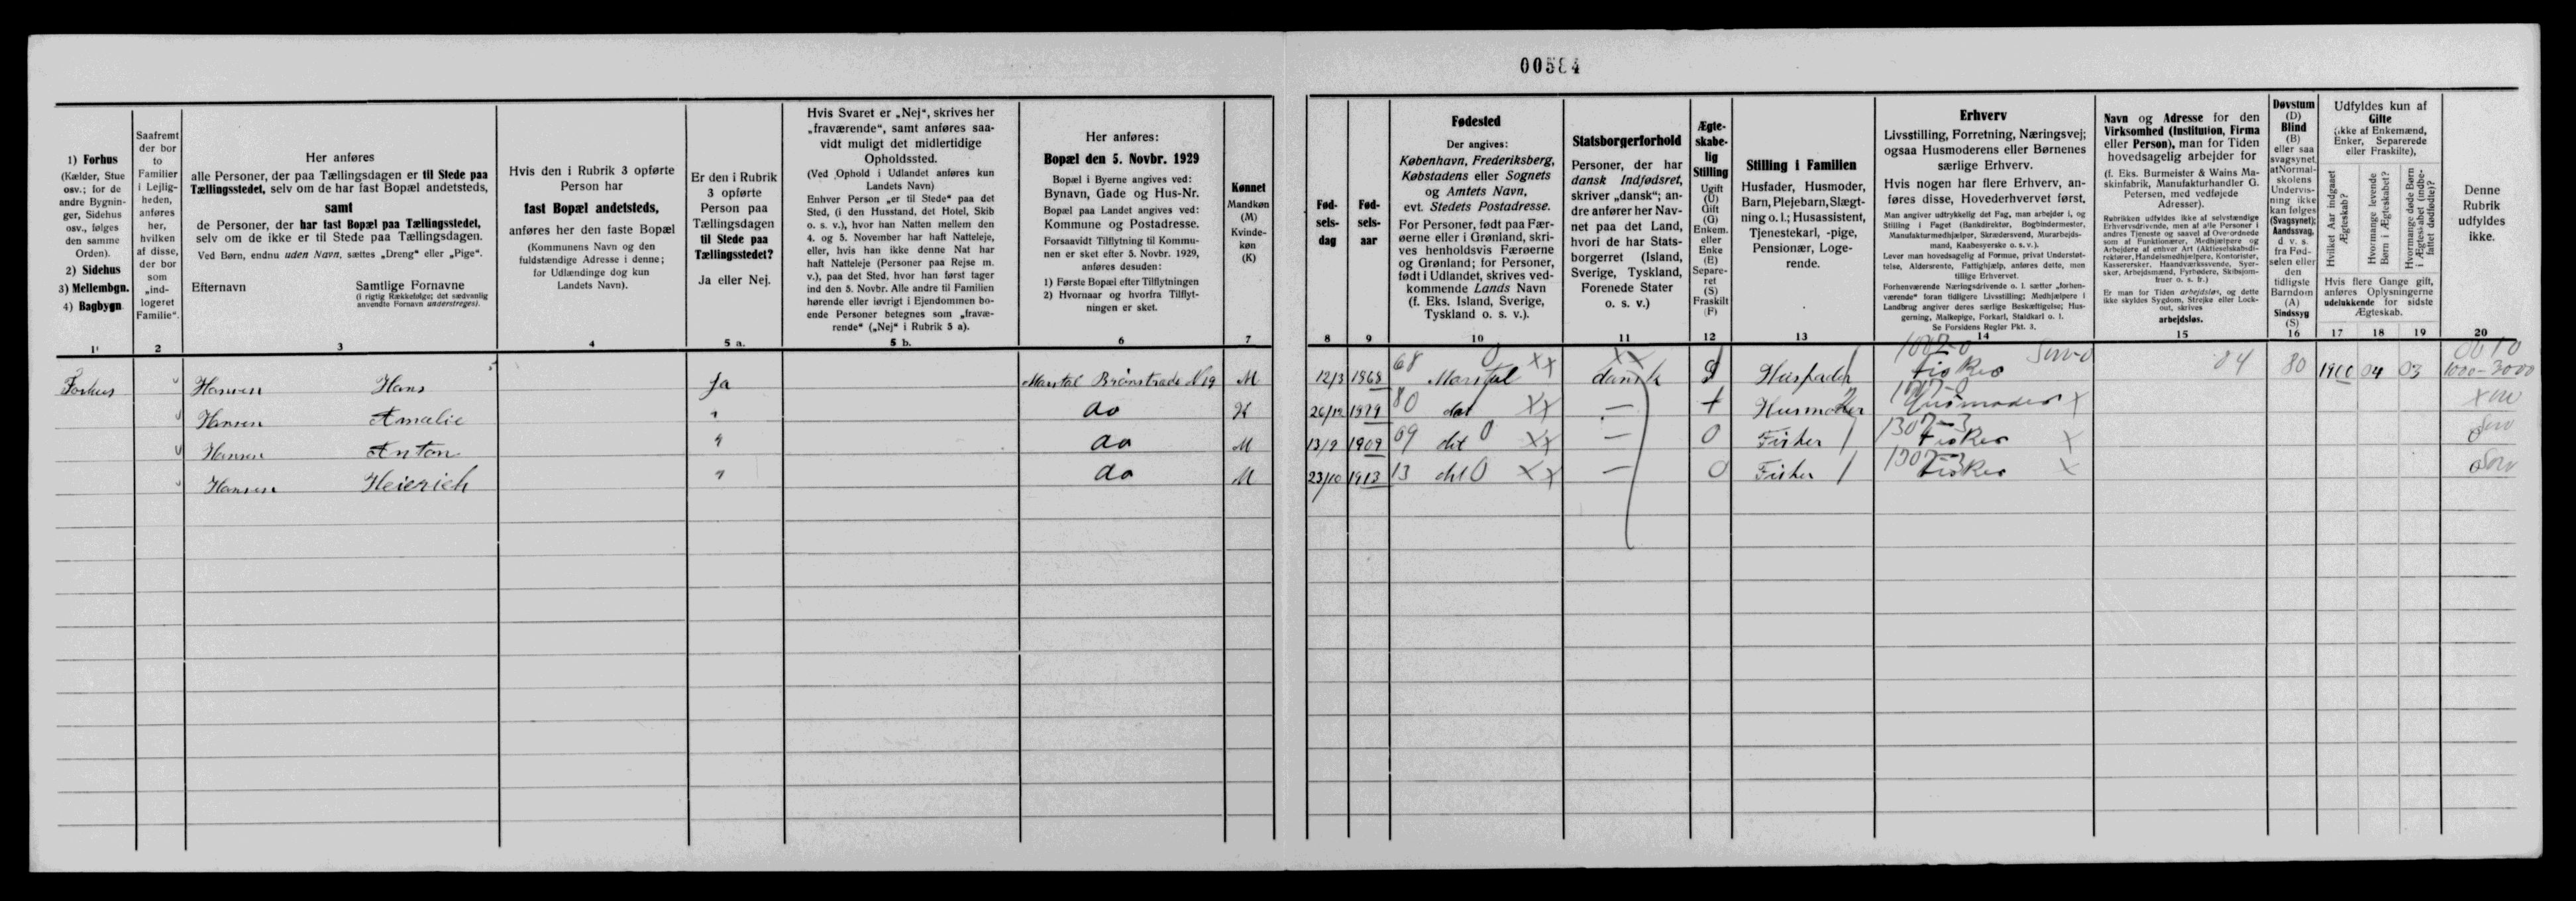 00584
1) Forhus
(Kælder, Stue
osv.; for de
andre Bygnin-
ger, Sidehus
osv., følges
den samme
Orden).
2) Sidehus
3) Mellembgn.
4) Bagbygn.
Saafremt
der bor
to
Familier
i Lejlig-
heden,
anføres
her,
hvilken
af disse,
der bor
som
„ind-
logeret
Familie“.
Her anføres
alle Personer, der paa Tællingsdagen er til Stede paa
Tællingsstedet, selv om de har fast Bopæl andetsteds,
samt
de Personer, der har fast Bopæl paa Tællingsstedet,
selv om de ikke er til Stede paa Tællingsdagen.
Ved Børn, endnu uden Navn, sættes „Dreng“ eller „Pige“.
Efternavn
Samtlige Fornavne
(i rigtig Rækkefølge; det sædvanlig
anvendte Fornavn understreges).
Hvis den i Rubrik 3 opførte
Person har
fast Bopæl andetsteds,
anføres her den faste Bopæl
(Kommunens Navn og den
fuldstændige Adresse i denne;
for Udlændinge dog kun
Landets Navn).
Er den i Rubrik
3 opførte
Person paa
Tællingsdagen
til Stede paa
Tællingsstedet?
Ja eller Nej.
Hvis Svaret er „Nej“, skrives her
„fraværende“, samt anføres saa-
vidt muligt det midlertidige
Opholdssted.
(Ved Ophold i Udlandet anføres kun
Landets Navn)
Enhver Person „er til Stede“ paa det
Sted, (i den Husstand, det Hotel, Skib
o. s. v.), hvor han Natten mellem den
4. og 5. November har haft Natteleje,
eller, hvis han ikke denne Nat har
haft Natteleje (Personer paa Rejse m.
v.), paa det Sted, hvor han først tager
ind den 5. Novbr. Alle andre til Familien
hørende eller iøvrigt i Ejendommen bo-
ende Personer betegnes som „fravæ-
rende“ („Nej“ i Rubrik 5 a).
Her anføres:
Bopæl den 5. Novbr. 1929
Bopæl i Byerne angives ved:
Bynavn, Gade og Hus-Nr.
Bopæl paa Landet angives ved:
Kommune og Postadresse.
Forsaavidt Tilflytning til Kommu-
nen er sket efter 5. Novbr. 1929,
anføres desuden:
1) Første Bopæl efter Tilflytningen
2) Hvornaar og hvorfra Tilflyt-
ningen er sket.
Kønnet
Mandkøn
(M)
Kvinde-
køn
(K)
Fød-
sels-
dag
Fød-
sels-
aar
Fødested
Der angives:
København, Frederiksberg,
Købstadens eller Sognets
og Amtets Navn,
evt. Stedets Postadresse.
For Personer, født paa Fær-
øerne eller i Grønland, skri-
ves henholdsvis Færøerne
og Grønland; for Personer,
født i Udlandet, skrives ved-
kommende Lands Navn
(f. Eks. Island, Sverige,
Tyskland o. s. v.).
Statsborgerforhold
Personer, der har
dansk Indfødsret,
skriver „dansk“; an-
dre anfører her Nav-
net paa det Land,
hvori de har Stats-
borgerret (Island,
Sverige, Tyskland,
Forenede Stater
o. s. v.)
Ægte-
skabe-
lig
Stilling
Ugift
(U)
Gift
(G)
Enkem.
eller
Enke
(E)
Separe-
ret
(S)
Fraskilt
(F)
Stilling i Familien
Husfader, Husmoder,
Barn, Plejebarn, Slægt-
ning o. l.; Husassistent,
Tjenestekarl, -pige,
Pensionær, Loge-
rende.
Erhverv
Livsstilling, Forretning, Næringsvej;
ogsaa Husmoderens eller Børnenes
særlige Erhverv.
Hvis nogen har flere Erhverv, an-
føres disse, Hovederhvervet først.
Man angiver udtrykkelig det Fag, man arbejder i, og
Stilling i Faget (Bankdirektør, Bogbindermester,
Manufakturmedhjælper, Skrædersvend, Murarbejds-
mand, Kaabesyerske o. s. v.).
Lever man hovedsagelig af Formue, privat Understøt-
telse, Aldersrente, Fattighjælp, anføres dette, men
tillige Erhvervet.
Forhenværende Næringsdrivende o. l. sætter „forhen-
værende“ foran tidligere Livsstilling; Medhjælpere i
Landbrug angiver deres særlige Beskæftigelse; Hus-
gerning, Malkepige, Forkarl, Staldkarl o. l.
Se Forsidens Regler Pkt. 3.
Navn og Adresse for den
Virksomhed (Institution, Firma
eller Person), man for Tiden
hovedsagelig arbejder for
(f. Eks. Burmeister & Wains Ma-
skinfabrik, Manufakturhandler G.
Petersen, med vedføjede
Adresser).
Rubrikken udfyldes ikke af selvstændige
Erhvervsdrivende, men af alle Personer i
andres Tjeneste og saavel af Overordnede
som af Funktionærer, Medhjælpere og
Arbejdere af enhver Art (Aktieselskabsdi-
rektører, Handelsmedhjælpere, Kontorister,
Kassererske, Haandværkssvende, Syer-
sker, Arbejdsmænd, Fyrbødere, Skibsjom-
fruer o. s. fr.)
Er man for Tiden arbejdsløs, og dette
ikke skyldes Sygdom, Strejke eller Lock-
out, skrives
arbejdsløs.
Døvstum
(D)
Blind
(B)
eller saa
svagsynet,
at Normal-
skolens
Undervis-
ning ikke
kan følges
(Svagsynet);
Aandssvag,
d. v. s.
fra Fød-
selen eller
den
tidligste
Barndom
(A)
Sindssyg
(S)
Udfyldes kun af
Gifte
(ikke af Enkemænd,
Enker, Separerede
eller Fraskilte),
Hvilket Aar indgaaet
Ægteskab?
Hvormange levende
Børn i Ægteskabet?
Hvormange døde Børn
i Ægteskabet (indbe-
fattet dødfødte)?
Hvis flere Gange gift,
anføres Oplysningerne
udelukkende for sidste
Ægteskab.
Denne
Rubrik
udfyldes
ikke.
1 2 3 4 5 a. 5 b. 6 7 8 9 10 11 12 13 14 15 16 17 18 19 20
Forhus Hansen Hans Ja Marstal Brønstræde N 19 M 12/3 1868 68 0 Marstal XX dansk XX g Husfader Fisker 84 80 1900 04 03 1000-3000
Hansen Amalie " do K 26/12 1879 80 det XX — + Husmoder Husmoder X
Hansen Anton " do M 13/2 1909 09 det 0 XX — 0 Fisker 1307-3 Fisker X
Hansen Heierich " do M 23/10 1913 13 det 0 XX — 0 Fisker 1307-3 Fisker X